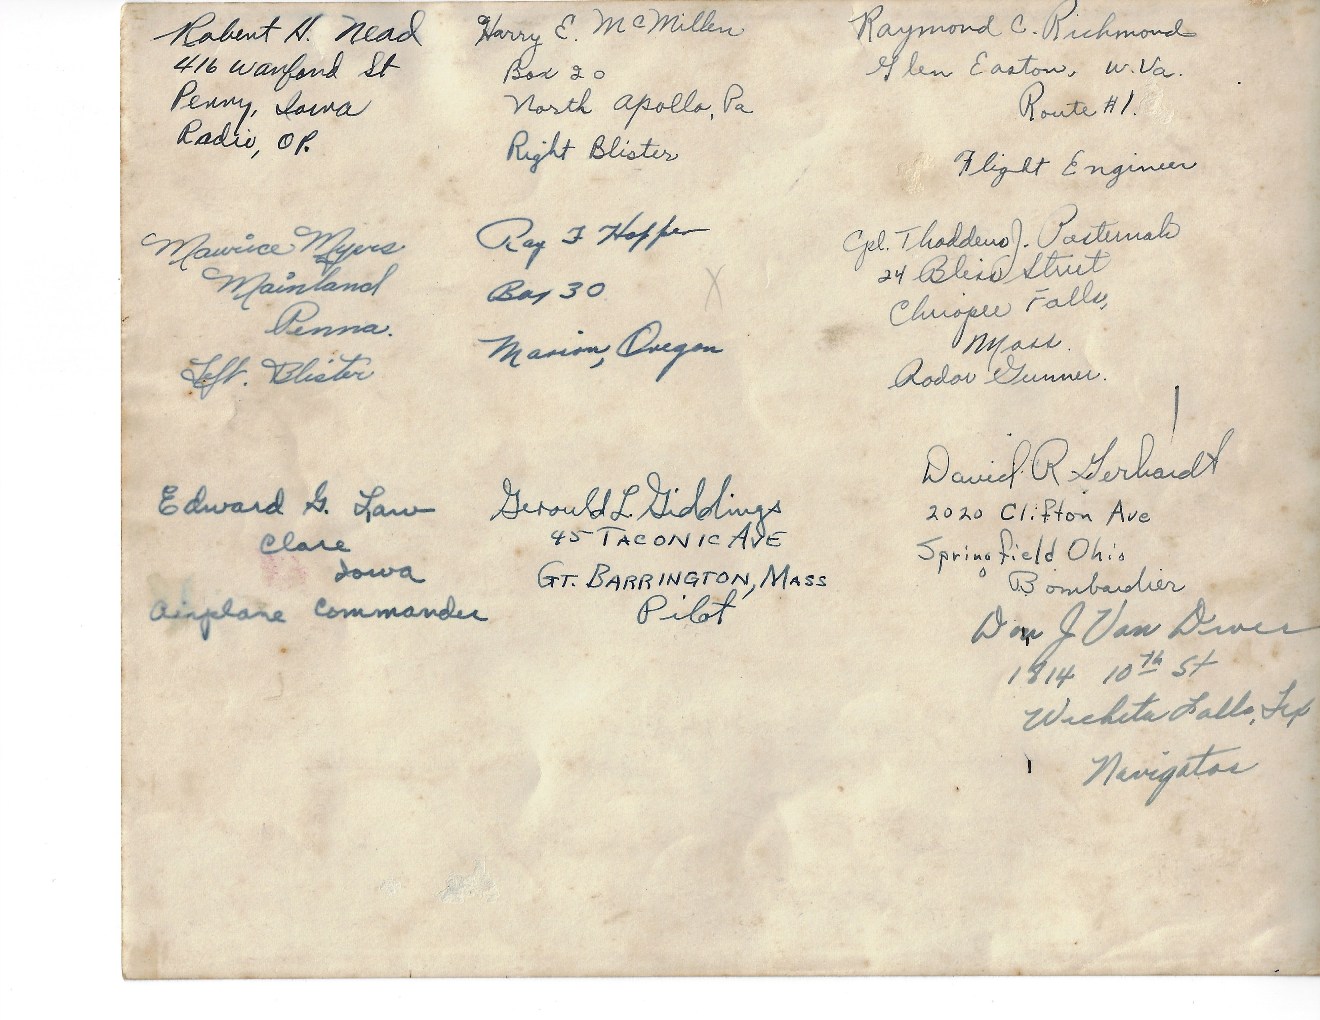 Robert H. Nead
416 Wanford St
Penny, Iowa
Radio, OP.
Harry E. McMillen
Box 20
North Apollo, Pa
Right Blister
Raymond C. Richmond
Glen Easton, W.Va.
Route #1.
Flight Engineer
Maurice Myers
Mainland
Penna.
Left. Blister
Ray F Hopper
Box 30
Marion, Oregon
Cpl. Thaddeus J. Pasternak
24 Bliss Street
Chicopee Falls,
Mass.
Radar Gunner.
Edward G. Law
Clare
Iowa
Airplane Commander
Gerould L Giddings
45 TACONIC AVE
GT. BARRINGTON, MASS
Pilot
David R Gerhardt
2020 Clifton Ave
Springfield Ohio
Bombardier
Don J Van Driver
1814 10th St
Wichita Falls, Tex
Navigator